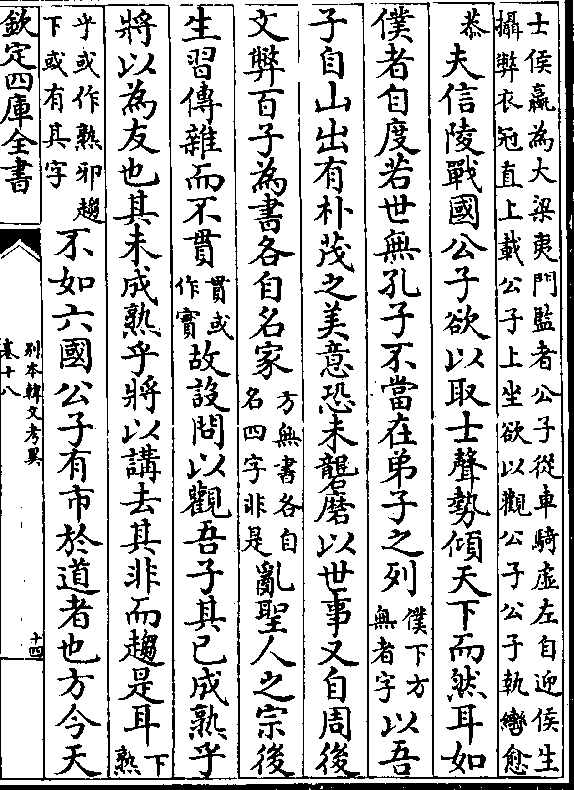 士侯嬴為大梁夷門監者公子從車騎虛左自迎侯生
攝弊衣冠直上載公子上坐欲以觀公子公子執轡愈
恭夫信陵戰國公子欲以取士聲勢傾天下而然耳如
僕者自度若世無孔子不當在弟子之列僕下方無者字以吾
子自山出有朴茂之美意恐未礱磨以世事又自周後
文弊百子為書各自名家方無書各自名四字非是亂聖人之宗後
生習傳雜而不貫貫或作實故設問以觀吾子其已成熟乎
將以為友也其未成熟乎將以講去其非而趨是耳下熟
乎或作熟邪趨下或有其字不如六國公子有市於道者也方今天
欽定四庫全書
別本韓文考異
卷十八
十四